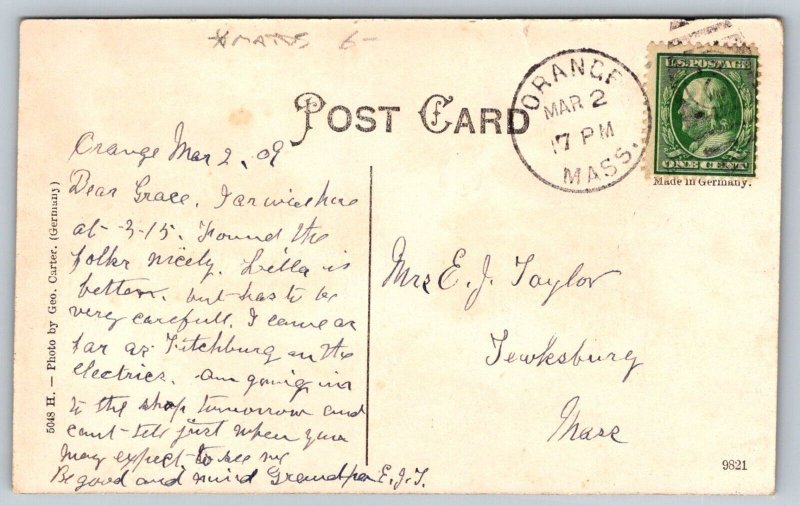 XMAS 6-
POST CARD
ORANGE
MAR 2
7 PM
MASS.
U.S. POSTAGE
ONE CENT
Made in Germany.
5048 H. — Photo by Geo. Carter. (Germany)
Orange Mar 2, 09
Dear Grace. I arived here
at 3-15. Found the
folks nicely. Lilla is
better. but has to be
very carefull. I came as
far as Fitchburg on the
electrics. am going in
to the shop tomorrow and
cant tell just when you
may expect to see me
Be good and mind Grandpa E.J.T.
Mrs E. J. Taylor
Tewksbury
Mass
9821